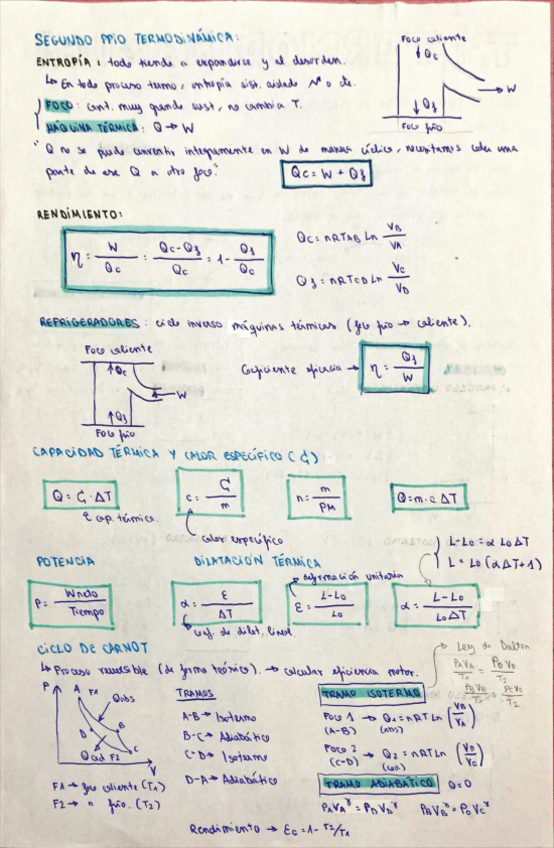 SEGUNDO PPIO TERMODINÁMICA:
ENTROPÍA: todo tiende a expandirse y al desorden.
↳ En todo proceso termo, entropía sist. aislado ↗ o cte.
FOCO: cant. muy grande sust, no cambia T.
MÁQUINA TÉRMICA: Q → W
"Q no se puede convertir integramente en W de manera cíclica, necesitamos ceder una
parte de ese Q a otro foco."
Qc = W + Qf
Foco caliente
↑Qc
→ W
↓Qf
Foco frío
RENDIMIENTO:
η = W/Qc = Qc-Qf/Qc = 1 - Qf/Qc
Qc = nRTAB Ln VB/VA
Qf = nRTCD Ln VC/VD
REFRIGERADORES: ciclo inverso máquinas térmicas (foco frío → caliente).
Foco caliente
↑Qc
W
↑Qf
Foco frío
Coeficiente eficacia → η = Qf/W
CAPACIDAD TÉRMICA Y CALOR ESPECÍFICO (Ç)
Q = Ç·ΔT
cap. térmica.
c = Ç/m
calor específico
n = m/PM
Q = m·c ΔT
POTENCIA
P = Wneto/Tiempo
DILATACIÓN TÉRMICA
α = ε/ΔT
coef. de dilat. lineal
deformación unitaria
ε = L-L0/L0
α = L-L0/L0ΔT
L-L0 = α L0 ΔT
L = L0 (αΔT+1)
CICLO DE CARNOT
↳ Proceso reversible (de forma teórica). → calcular eficiencia motor.
P
A F1
Qabs
B
D
C
Qced F2
V
F1 → foco caliente (T1)
F2 → " frío. (T2)
TRAMOS
A-B → Isotermo
B-C → Adiabático
C-D → Isotermo
D-A → Adiabático
Ley de Dalton
TRAMO ISOTERMO
FOCO 1 → Q1 = nRT Ln (VB/VA)
(A-B) (abs)
FOCO 2 → Q2 = nRT Ln (VD/VC)
(C-D)
TRAMO ADIABÁTICO Q=0
PAVA^γ = PDVD^γ PBVB^γ = PCVC^γ
Rendimiento → Ec = 1 - T2/T1